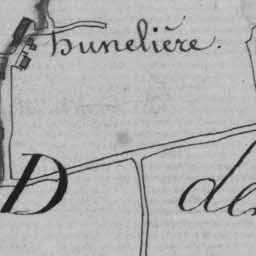 hunelière.
D de